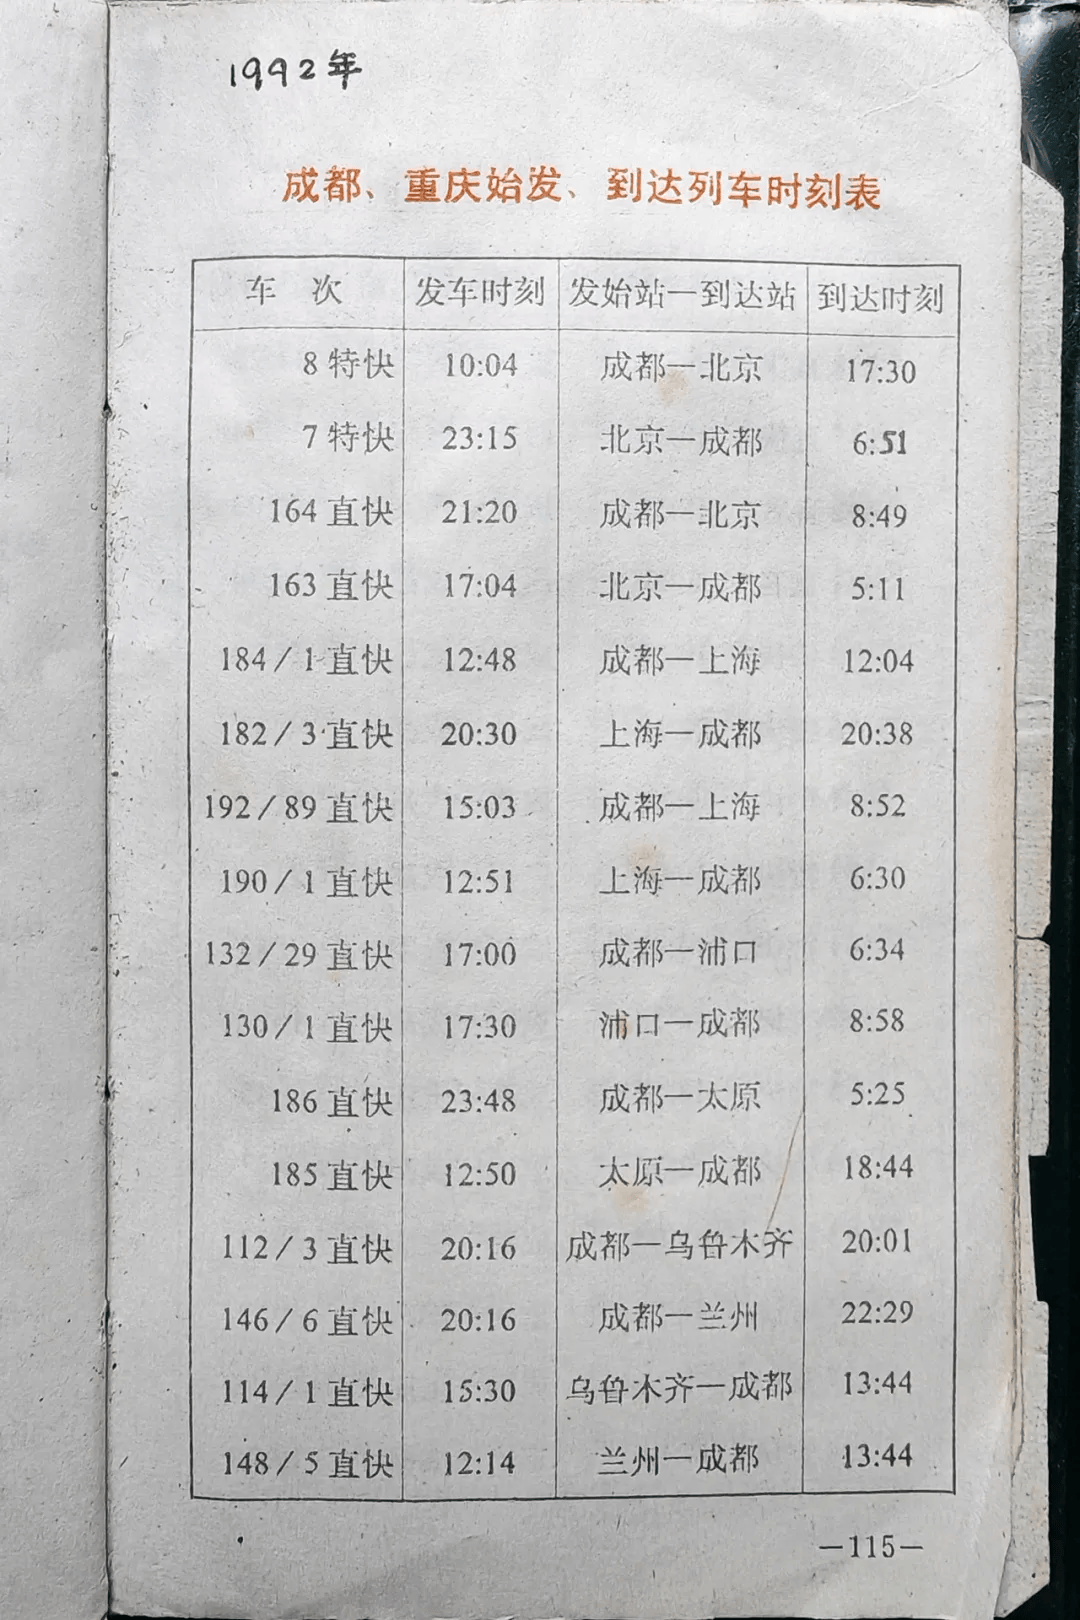 1992年
成都、重庆始发、到达列车时刻表
车 次 发车时刻 发始站—到达站 到达时刻
8 特快 10:04 成都—北京 17:30
7 特快 23:15 北京—成都 6:51
164 直快 21:20 成都—北京 8:49
163 直快 17:04 北京—成都 5:11
184 / 1 直快 12:48 成都—上海 12:04
182 / 3 直快 20:30 上海—成都 20:38
192 / 89 直快 15:03 成都—上海 8:52
190 / 1 直快 12:51 上海—成都 6:30
132 / 29 直快 17:00 成都—浦口 6:34
130 / 1 直快 17:30 浦口—成都 8:58
186 直快 23:48 成都—太原 5:25
185 直快 12:50 太原—成都 18:44
112 / 3 直快 20:16 成都—乌鲁木齐 20:01
146 / 6 直快 20:16 成都—兰州 22:29
114 / 1 直快 15:30 乌鲁木齐—成都 13:44
148 / 5 直快 12:14 兰州—成都 13:44
—115—